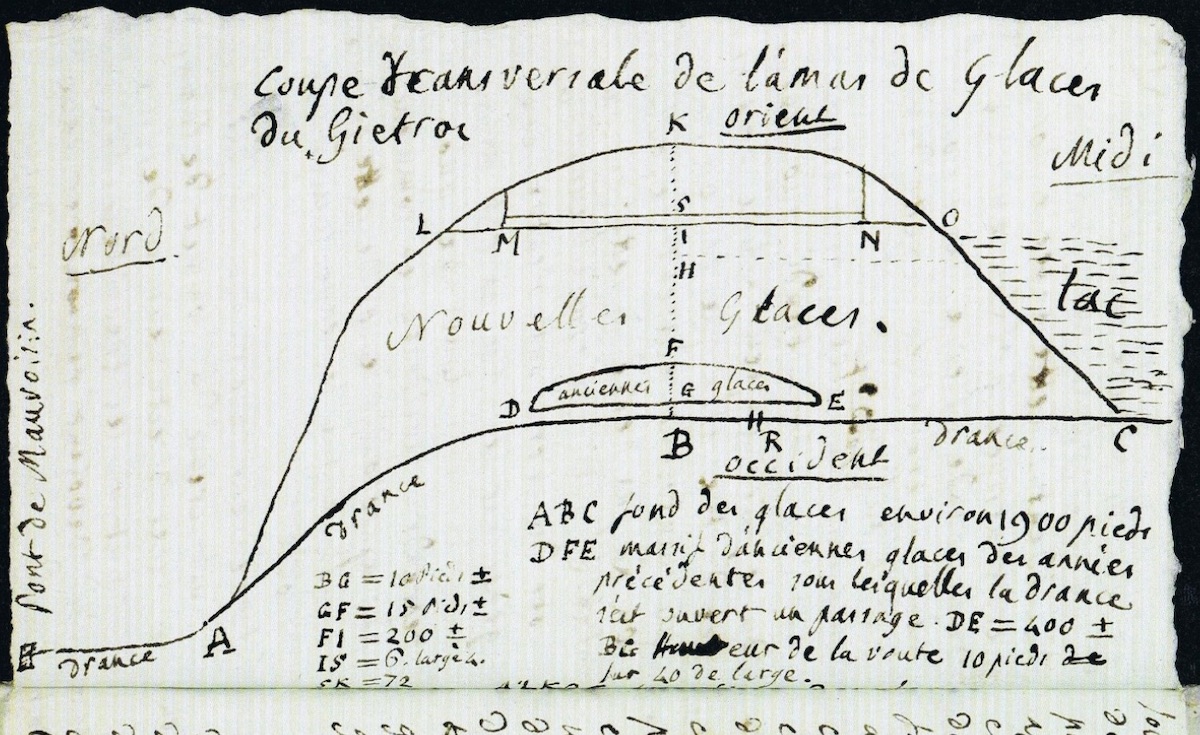 Coupe transversale de l'amas de Glaces
du Gietroz
K orient
Midi
Nord
L
M
S
I
N
O
H
lac
Nouvelles Glaces.
F
D
anciennes G glaces
E
B
R
Drance
C
occident
Drance
Pont de Mauvoisin.
H
Drance
A
BG = 10 pieds ±
GF = 15 pids ±
FI = 200 ±
IS = 6.
SK = 72
ABC fond des glaces environ 1900 pieds
DFE massif d'anciennes glaces des années
précédentes sous lesquelles la Drance
s'est ouvert un passage. DE = 400 ±
BG Hauteur de la voute 10 pieds de
sur 40 de large.